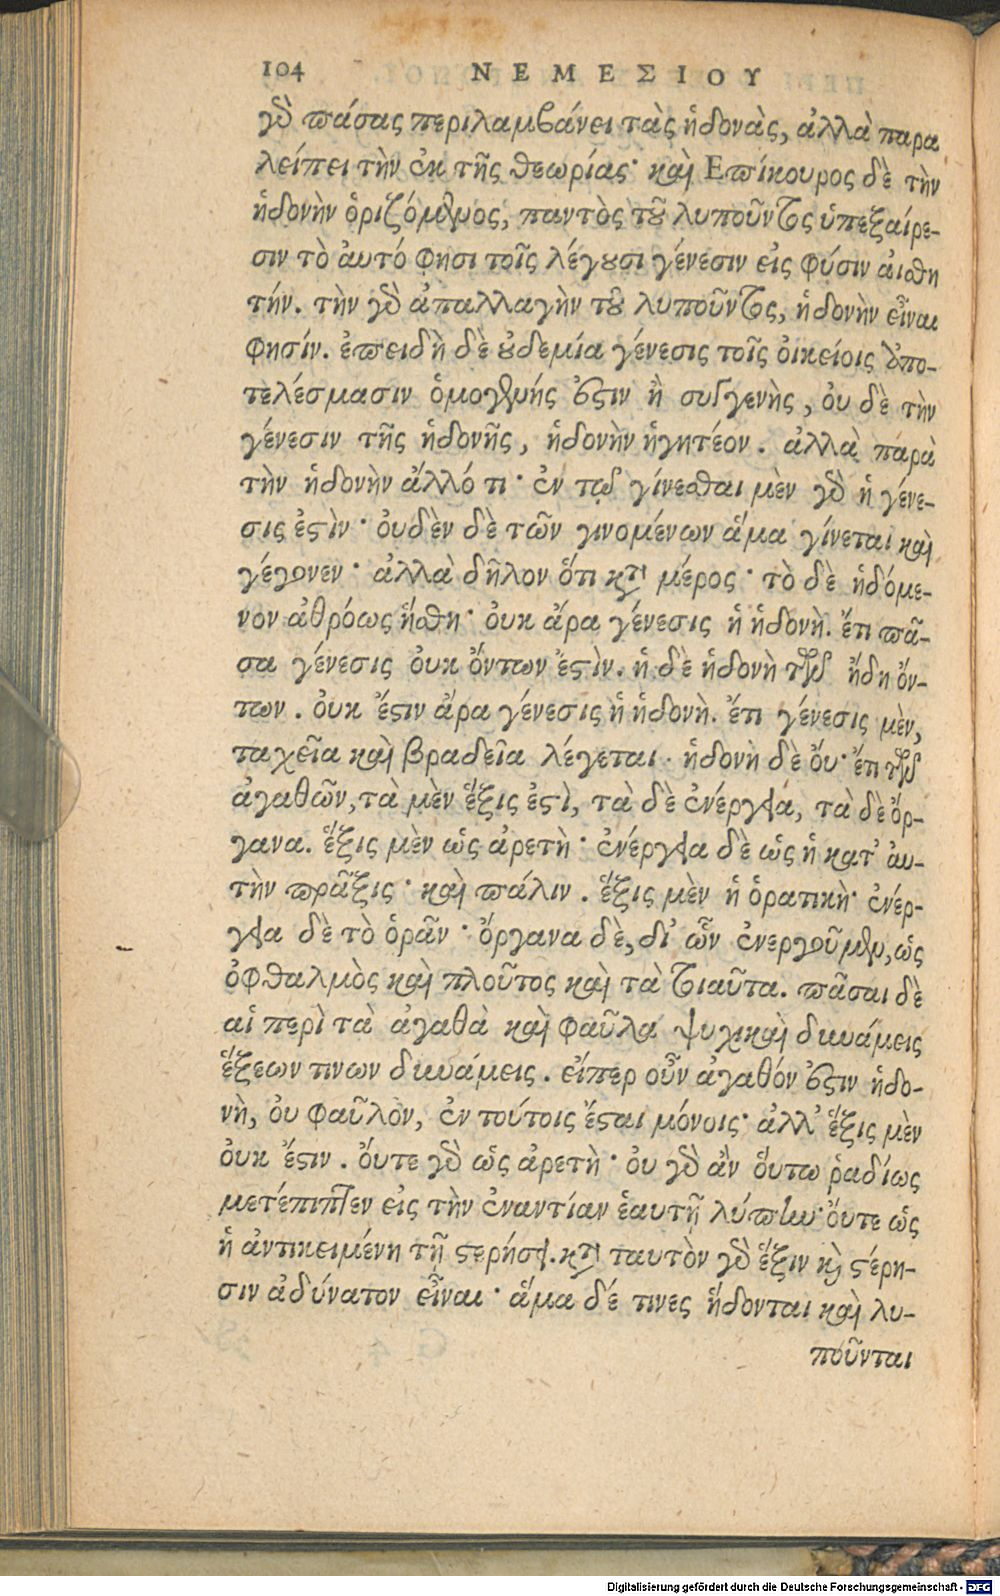 104 ΝΕΜΕΣΙΟΥ
γὸ πάσας περιλαμβάνει τὰς ἡδονὰς, ἀλλὰ παρα
λείπει τὴν ἐκ τῆς θεωρίας· καὶ Επίκουρος δὲ τὴν
ἡδονὴν ὁριζόμενος, παντὸς τοῦ λυποῦντος ὑπεξαίρε-
σιν τὸ ἀυτό φησι τοῖς λέγουσι γένεσιν εἰς φύσιν αἰσθη
τήν. τὴν γὸ ἀπαλλαγὴν τοῦ λυποῦντος, ἡδονὴν εἶναι
φησίν. ἐπειδὴ δὲ οὐδεμία γένεσις τοῖς οἰκείοις ἀπο-
τελέσμασιν ὁμογενής ἐστιν ἢ συγγενὴς, οὐ δὲ τὴν
γένεσιν τῆς ἡδονῆς, ἡδονὴν ἡγητέον. ἀλλὰ παρὰ
τὴν ἡδονὴν ἄλλό τι· ἐν τῷ γίνεσθαι μὲν γὸ ἡ γένε-
σις ἐστὶν· οὐδὲν δὲ τῶν γινομένων ἅμα γίνεται καὶ
γέγονεν· ἀλλὰ δῆλον ὅτι κατὰ μέρος· τὸ δὲ ἡδόμε-
νον ἀθρόως ἥσθη· οὐκ ἄρα γένεσις ἡ ἡδονὴ. ἔτι πᾶ-
σα γένεσις οὐκ ὄντων ἐστὶν. ἡ δὲ ἡδονὴ τῶν ἤδη ὄν-
των. οὐκ ἔστιν ἄρα γένεσις ἡ ἡδονὴ. ἔτι γένεσις μὲν,
ταχεῖα καὶ βραδεῖα λέγεται· ἡδονὴ δὲ οὔ· ἔτι τῶν
ἀγαθῶν, τὰ μὲν ἕξις ἐστὶ, τὰ δὲ ἐνέργεια, τὰ δὲ ὄρ-
γανα. ἕξις μὲν ὡς ἀρετὴ· ἐνέργεια δὲ ὡς ἡ κατ' ἀυ-
τὴν πρᾶξις· καὶ πάλιν. ἕξις μὲν ἡ ὁρατικὴ· ἐνέρ-
γεια δὲ τὸ ὁρᾶν· ὄργανα δὲ, δι' ὧν ἐνεργοῦμεν, ὡς
ὀφθαλμὸς καὶ πλοῦτος καὶ τὰ τοιαῦτα. πᾶσαι δὲ
αἱ περὶ τὰ ἀγαθὰ καὶ φαῦλα ψυχικαὶ δυνάμεις
ἕξεων τινων δυνάμεις. εἴπερ οὖν ἀγαθόν ἐστιν ἡδο-
νὴ, οὐ φαῦλον, ἐν τούτοις ἔσται μόνοις· ἀλλ' ἕξις μὲν
οὐκ ἔστιν. ὄυτε γὸ ὡς ἀρετὴ· οὐ γὸ ἂν ὅυτω ῥαδίως
μετέπιπτεν εἰς τὴν ἐναντίαν ἑαυτῇ λύπην· ὄυτε ὡς
ἡ ἀντικειμένη τῇ στερήσει. κατὰ ταυτὸν γὸ ἕξιν καὶ στέρη-
σιν ἀδύνατον εἶναι· ἅμα δέ τινες ἥδονται καὶ λυ-
ποῦνται
Digitalisierung gefördert durch die Deutsche Forschungsgemeinschaft - DFG